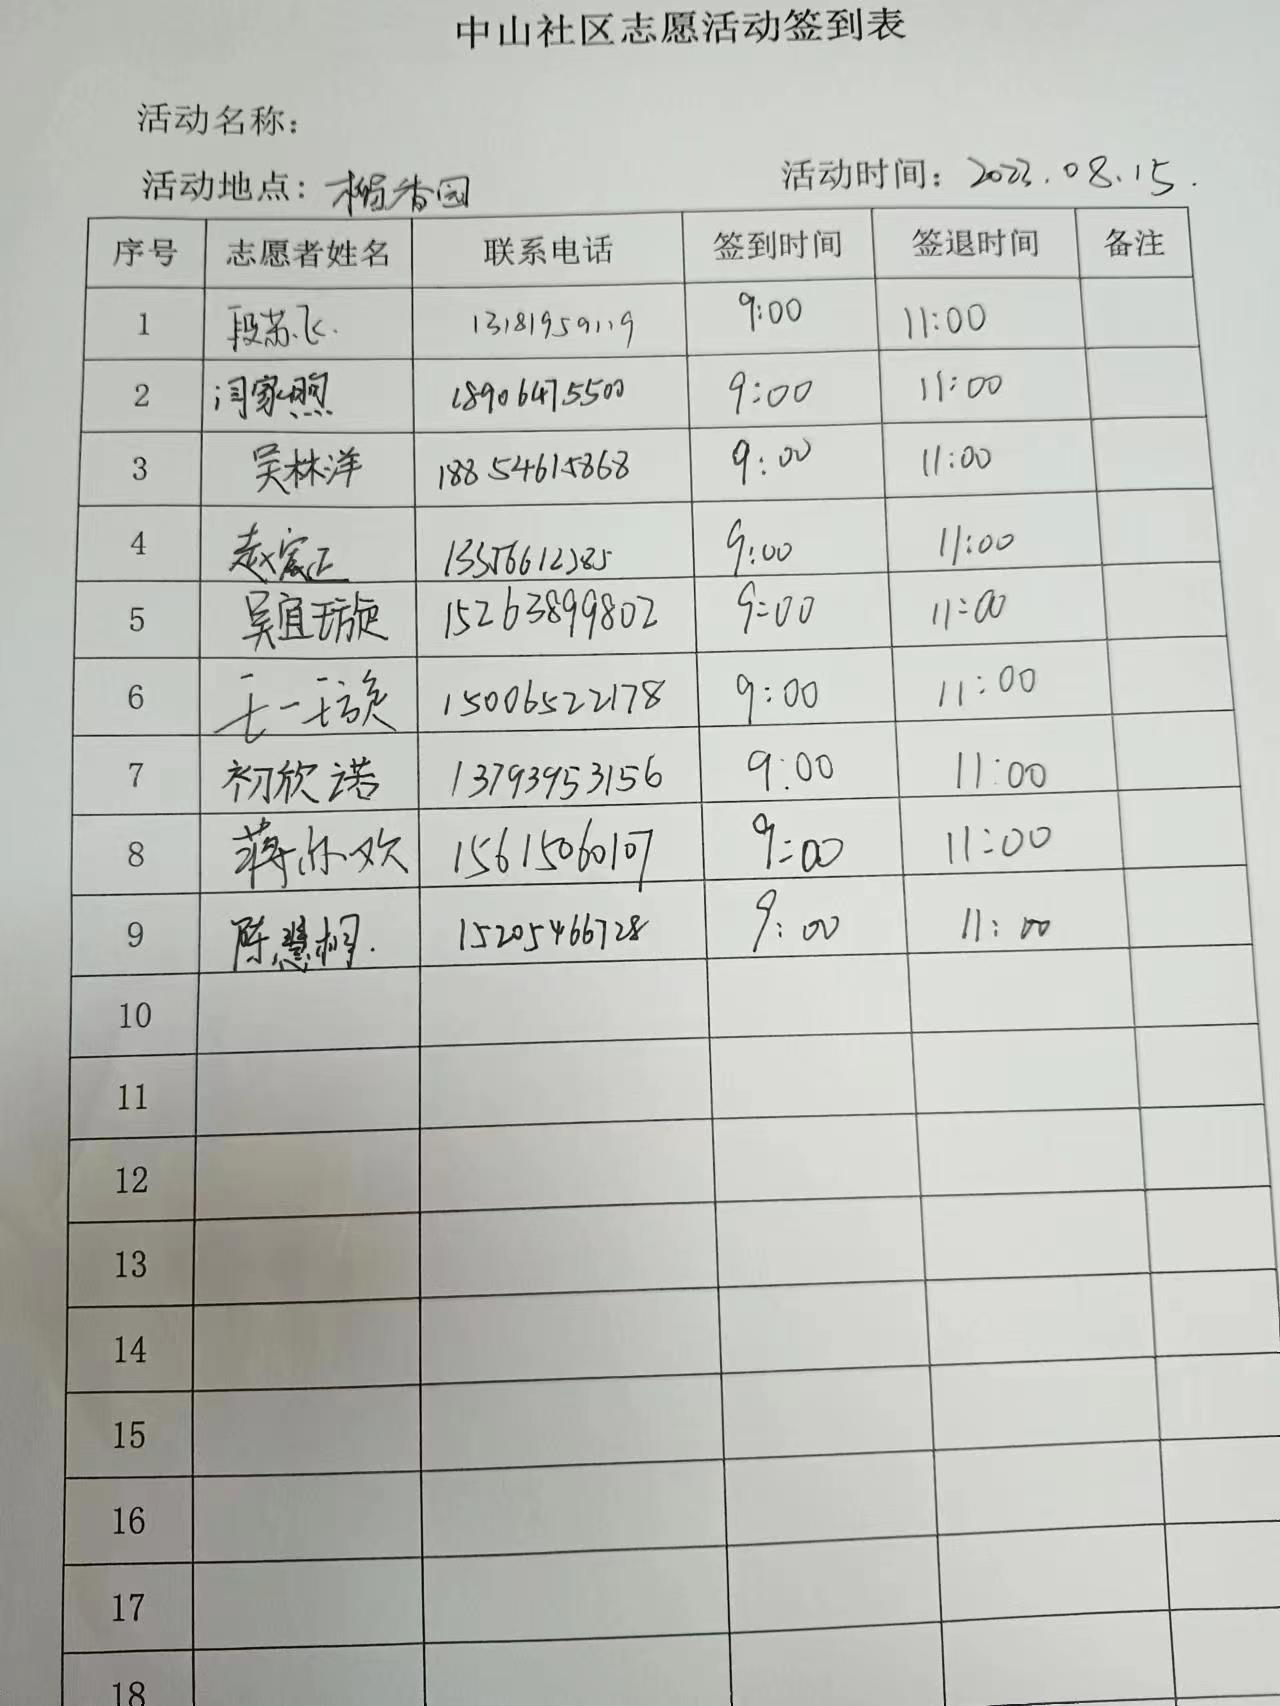 中山社区志愿活动签到表
活动名称：
活动地点：杨香园 活动时间：2023.08.15.
序号 志愿者姓名 联系电话 签到时间 签退时间 备注
1 段苏飞. 13181959119 9:00 11:00
2 闫家煦 18906475500 9:00 11:00
3 吴林洋 18854615868 9:00 11:00
4 赵宸正 9:00 11:00
5 吴宜璇 15263899802 9:00 11:00
6 王一璇 15006522178 9:00 11:00
7 初欣诺 13793953156 9:00 11:00
8 蒋尔欢 15615060107 9:00 11:00
9 陈慧桐. 15205466728 9:00 11:00
10
11
12
13
14
15
16
17
18